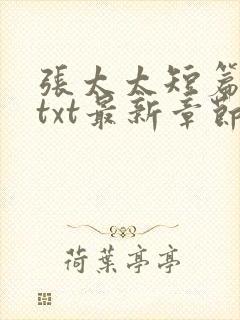 張太太短篇
txt最新章節
荷葉亭亭